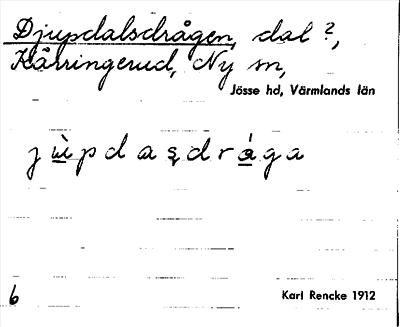 Djupdalsdrågen, dal ?,
Kärringerud, Ny sn,
Jösse hd, Värmlands län
jùpdasdrága
6
Karl Rencke 1912